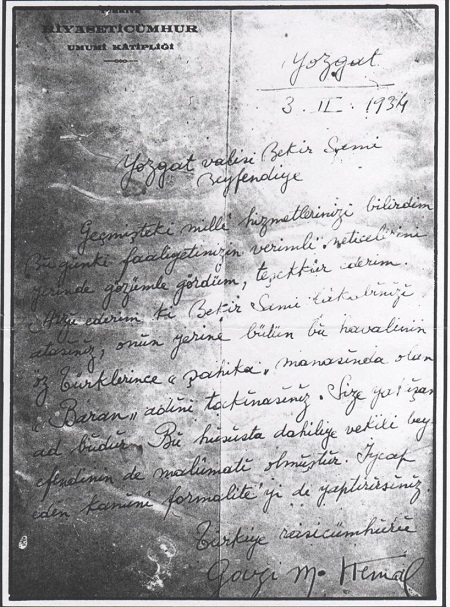 RİYASETİCÜMHUR
UMUMİ KÂTİPLİĞİ
Yozgat
3. II. 1934
Yozgat valisi Bekir Sami
Beyfendiye
Geçmişteki millî hizmetlerinizi bilirdim
Bu günkü faaliyetinizin verimli neticelerini
yerinde gözümle gördüm, teşekkür ederim.
Arzu ederim ki Bekir Sami lâkabınızı
atasınız, onun yerine bütün bu havalinin
öz Türklerince „ Şahika „ manasında olan
„ Baran „ adını takınasınız. Size yaraşan
ad budur. Bu hususta dahiliye vekili bey
efendinin de malûmatı olmuştur. İycap
eden kanunî formalite'yi de yaptırırsınız.
Türkiye reisicümhuru
Gazi M. Kemal